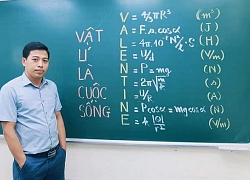 VẬT
LÍ
LÀ
CUỘC
SỐNG
V = 4/3πR³ (m³)
A = F.s.cosα (J)
L = 4π.10⁻⁷N²/ℓ.S (H)
E = U/d (V/m)
N = P = mg (N)
T = 2π√m/k (s)
I = U/R (A)
N = Pcosα = mgcosα (N)
E = k|Q|/r² (V/m)